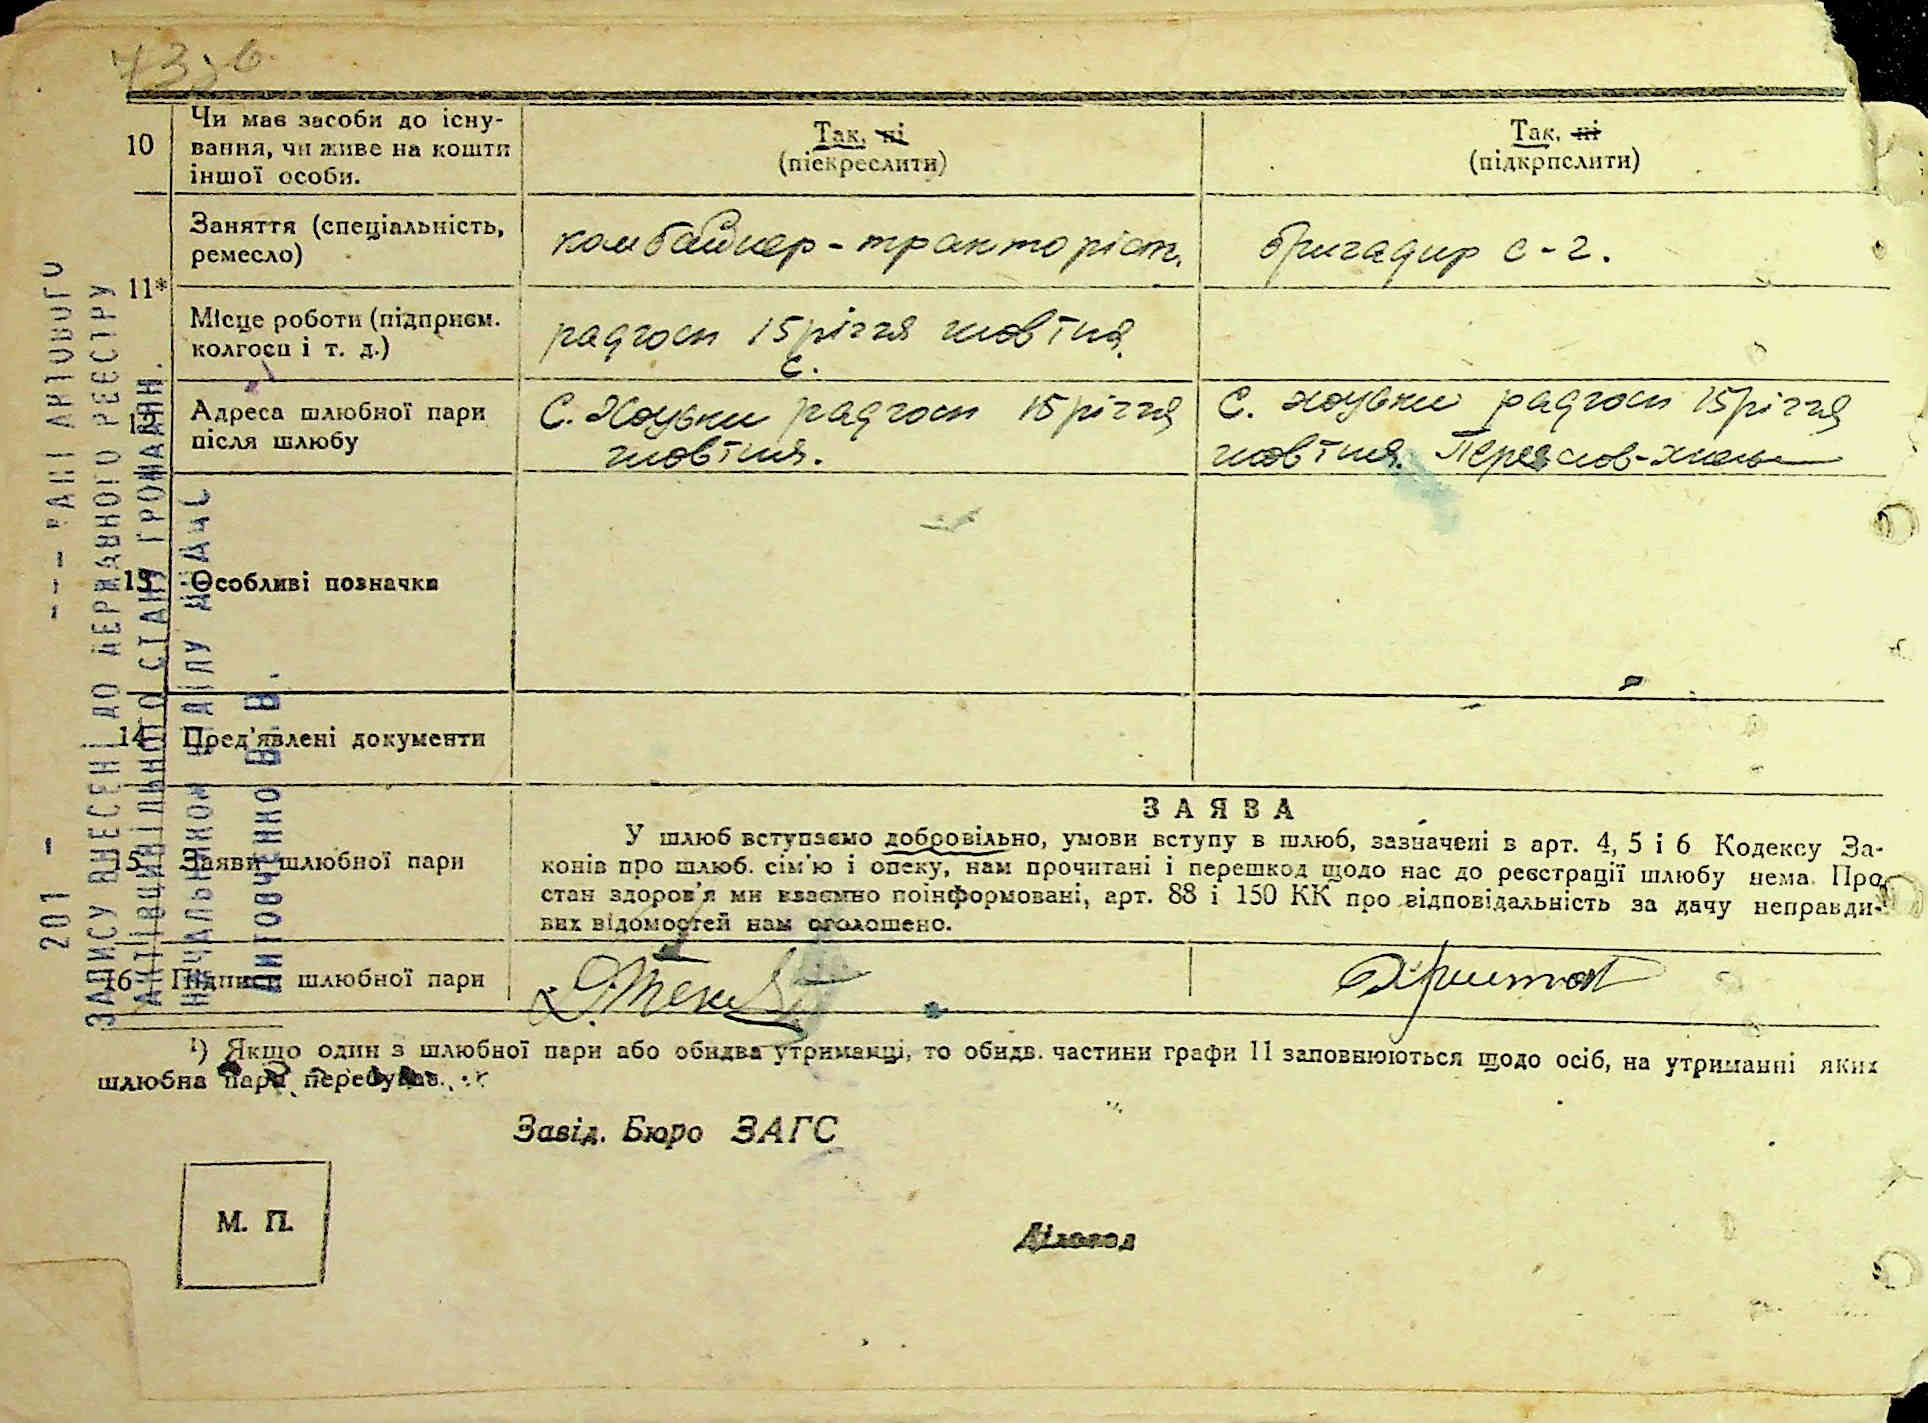 73зв
10
Чи має засоби до існу-
вання, чи живе на кошти
іншої особи.
Так, ні
(піскреслити)
Так, ні
(підкрпслити)
11*
Заняття (спеціальність,
ремесло)
комбайнер-тракторіст.
бригадир с-г.
Місце роботи (підприєм.
колгосп і т. д.)
радгосп 15 річчя жовтня
с.
12
Адреса шлюбної пари
після шлюбу
С. Хоцьки радгосп 15 річчя
жовтня.
С. Хоцьки радгосп 15 річчя
жовтня. Переяслов-Хмель
13
Особливі позначки
14
Пред'явлені документи
15
Заяви шлюбної пари
ЗАЯВА
У шлюб вступаємо добровільно, умови вступу в шлюб, зазначені в арт. 4, 5 і 6 Кодексу За-
конів про шлюб. сім'ю і опеку, нам прочитані і перешкод щодо нас до реєстрації шлюбу нема. Про
стан здоров'я ми взаємно поінформовані, арт. 88 і 150 КК про відповідальність за дачу неправди-
вих відомостей нам оголошено.
16
Підписи шлюбної пари
¹) Якщо один з шлюбної пари або обидва утриманці, то обидв. частини графи 11 заповнюються щодо осіб, на утриманні яких
шлюбна пара перебуває.
Завід. Бюро ЗАГС
М. П.
Діловод
201 -
АКТОВОГО
ЗАПИСУ ВНЕСЕНІ ДО ДЕРЖАВНОГО РЕЄСТРУ
АКТІВ ЦИВІЛЬНОГО СТАНУ ГРОМАДЯН.
НАЧАЛЬНИК ВІДДІЛУ ДРАЦС
ЛИТОВЧЕНКО В.В.